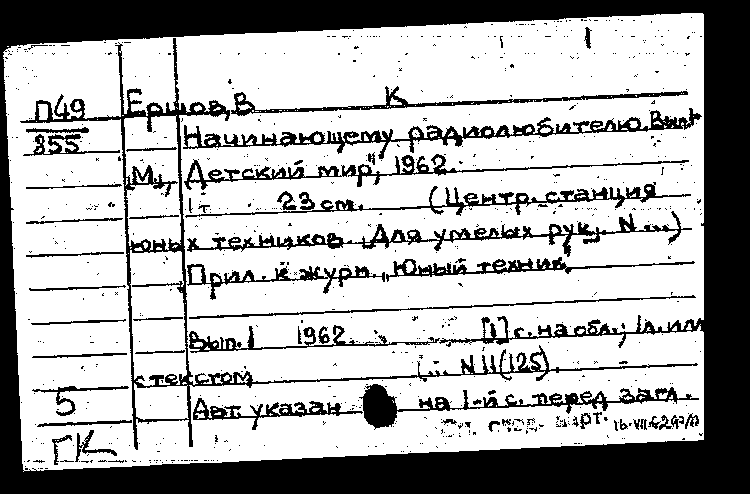 П49 Ершов, В К
855 Начинающему радиолюбителю. Вып.1-
"М", "Детский мир", 1962.
23 см. (Центр. станция
юных техников. "Для умелых рук". N ...)
Прил. к журн. "Юный техник"
Вып. 1 1962. [1] с. на обл.; 1 л. илл
с текстом (... N 11(125).
5 Авт. указан на 1-й с. перед загл.
ГК